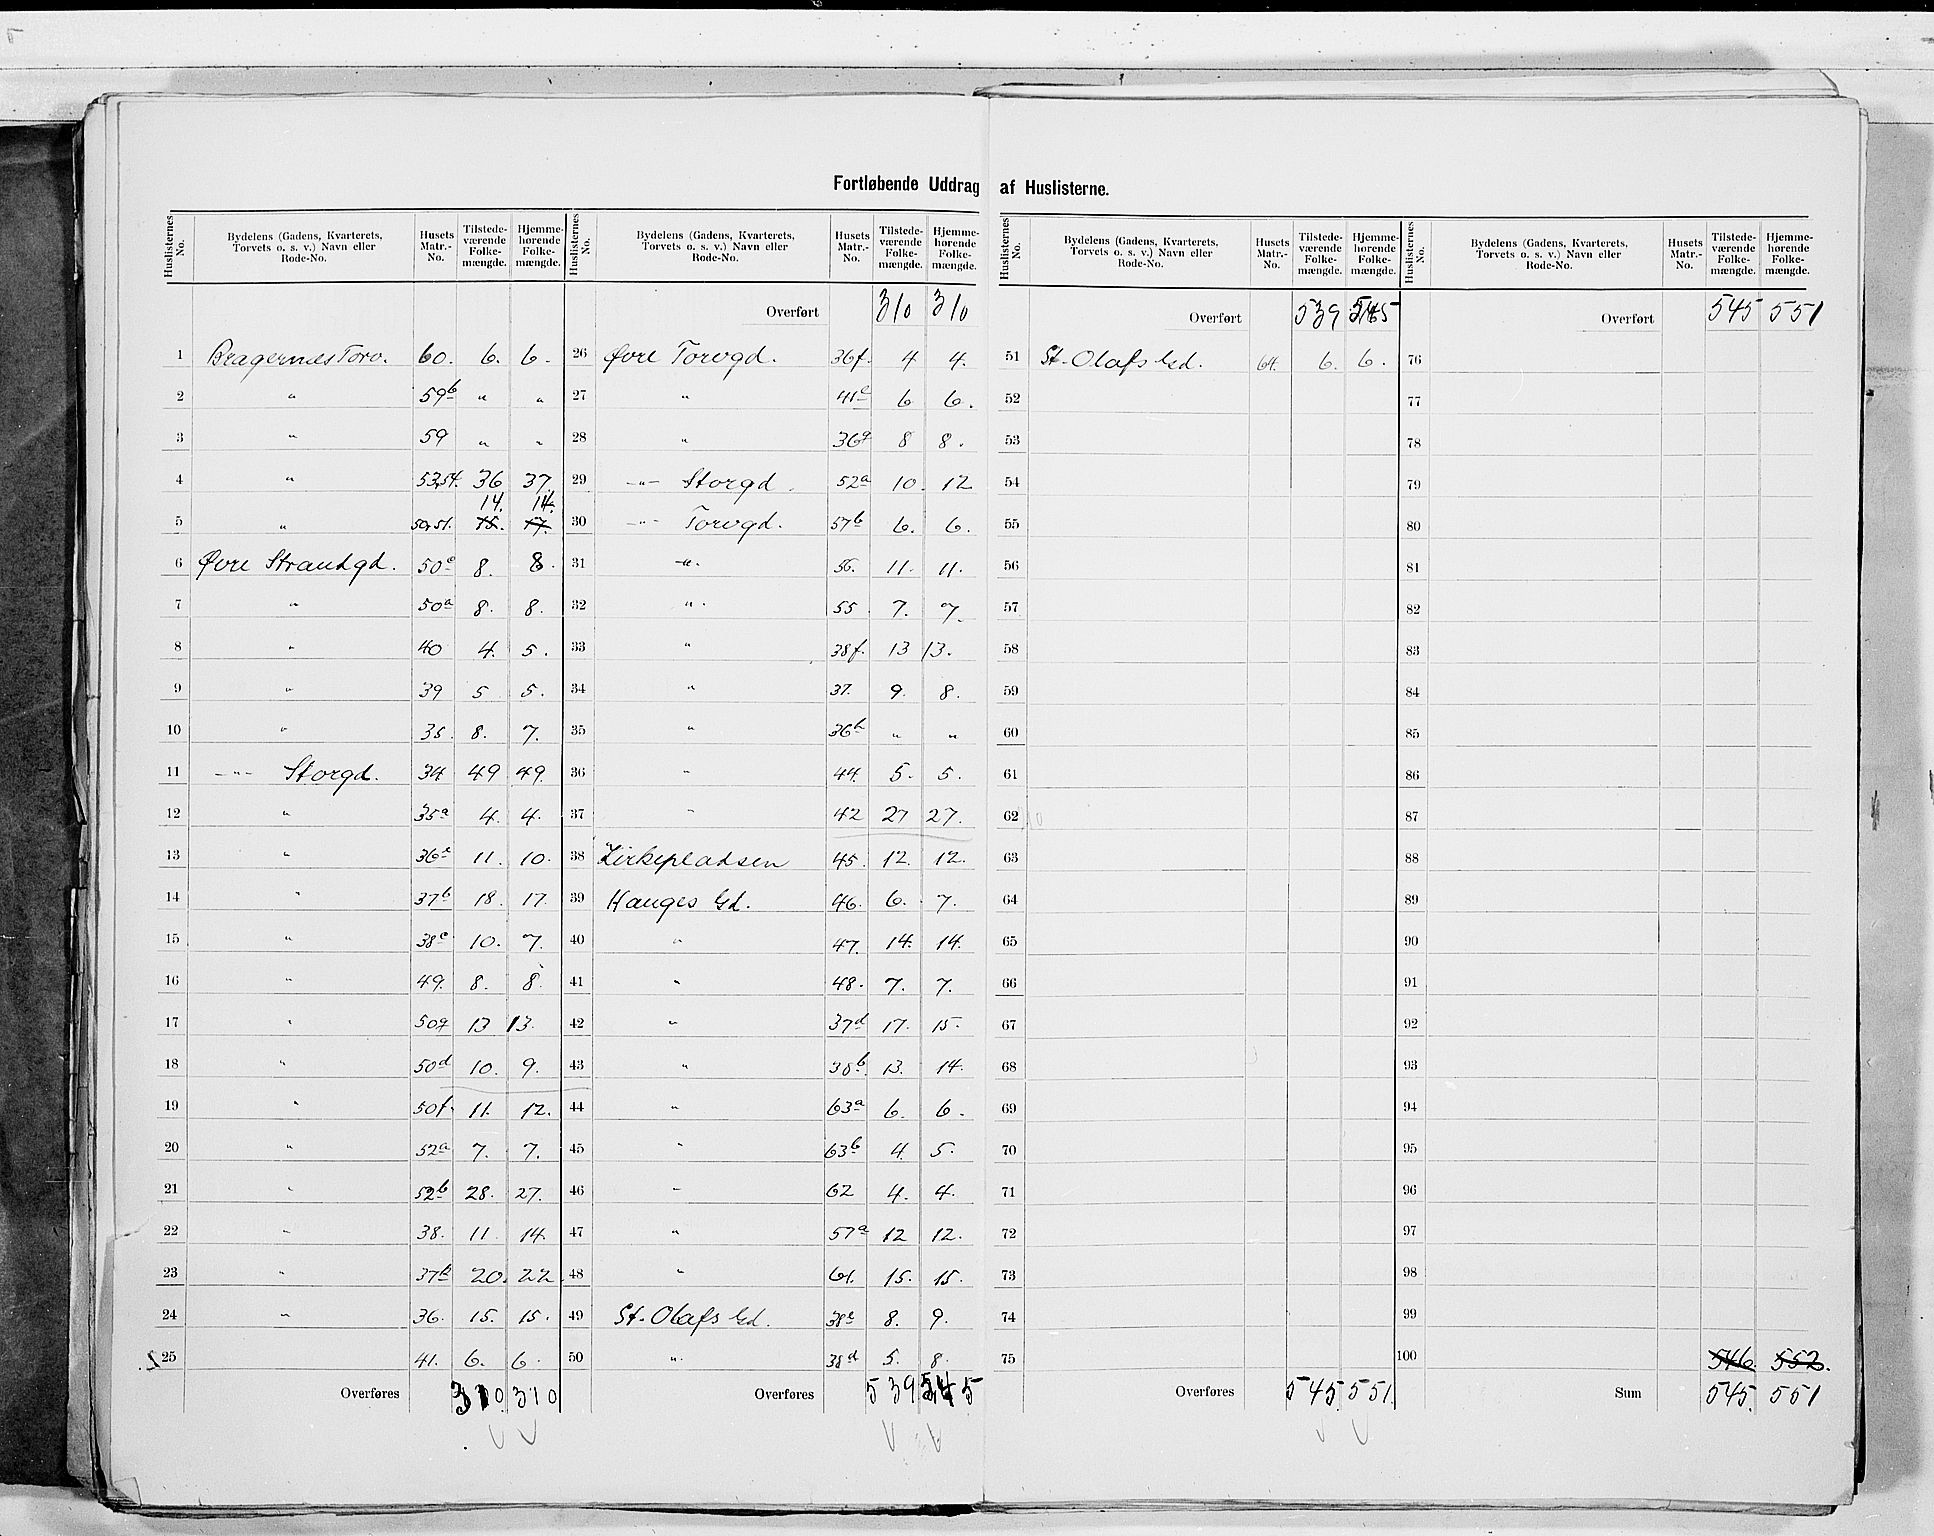 Fortløbende Uddrag af Huslisterne.
Huslisternes No. | Bydelens (Gadens, Kvarterets, Torvets o. s. v.) Navn eller Rode-No. | Husets Matr.-No. | Tilstedeværende Folkemængde. | Hjemmehørende Folkemængde.
1 Bragernes Torv. 60. 6. 6.
2 " 59b " "
3 " 59 " "
4 " 53,54. 36 37
14. 14.
5 " 50,51. 15. 17.
6 Øvre Strandgd. 50c 8. 8.
7 " 50a 8. 8.
8 " 40 4. 5.
9 " 39 5 5.
10 " 35. 8. 7.
11 -"- Storgd. 34 49 49.
12 " 35a 4. 4.
13 " 36c 11. 10.
14 " 37b 18. 17.
15 " 38c 10. 7.
16 " 49. 8. 8.
17 " 50g 13 13.
18 " 50d 10. 9.
19 " 50f. 11. 12.
20 " 52a 7. 7.
21 " 52b 28. 27.
22 " 38. 11. 14.
23 " 20. 22.
24 " 36. 15. 15.
25 41. 6. 6.
Overføres 310. 310
Huslisternes No. | Bydelens (Gadens, Kvarterets, Torvets o. s. v.) Navn eller Rode-No. | Husets Matr.-No. | Tilstedeværende Folkemængde. | Hjemmehørende Folkemængde.
Overført 310 310
26 Øvre Torvgd. 36f. 4 4.
27 " 41 6 6.
28 " 36g 8 8.
29 -"- Storgd. 52a 10. 12
30 -"- Torvgd. 57b 6. 6.
31 -"- 56. 11. 11.
32 " 55. 7. 7.
33 " 38f. 13 13.
34 " 37. 9. 8.
35 " 36h " "
36 " 44. 5. 5.
37 " 42 27 27.
38 Kirkepladsen 45. 12. 12.
39 Hauges Gd. 46. 6. 7.
40 " 47. 14. 14.
41 " 48. 7. 7.
42 " 37d 17. 15.
43 " 38b 13. 14.
44 " 63a 6. 6.
45 " 63b 4. 5.
46 " 62 4. 4.
47 " 57a 12 12.
48 " 61. 15. 15.
49 St. Olafs Gd. 38e 8. 9.
50 " 38d 5. 8.
Overføres 539 545
Huslisternes No. | Bydelens (Gadens, Kvarterets, Torvets o. s. v.) Navn eller Rode-No. | Husets Matr.-No. | Tilstedeværende Folkemængde. | Hjemmehørende Folkemængde.
Overført 539 545
51 St. Olafs Gd. 64. 6. 6.
52
53
54
55
56
57
58
59
60
61
62
63
64
65
66
67
68
69
70
71
72
73
74
75
Overføres 545. 551.
Huslisternes No. | Bydelens (Gadens, Kvarterets, Torvets o. s. v.) Navn eller Rode-No. | Husets Matr.-No. | Tilstedeværende Folkemængde. | Hjemmehørende Folkemængde.
Overført 545 551
76
77
78
79
80
81
82
83
84
85
86
87
88
89
90
91
92
93
94
95
96
97
98
99
100 546. 552.
Sum 545. 551